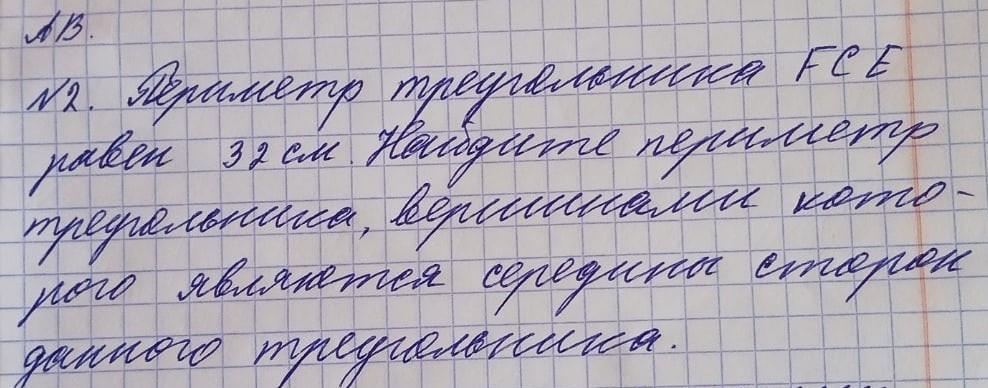 АВ.
№2. Периметр треугольника FCE
равен 32 см. Найдите периметр
треугольника, вершинами кото-
рого являются середины сторон
данного треугольника.